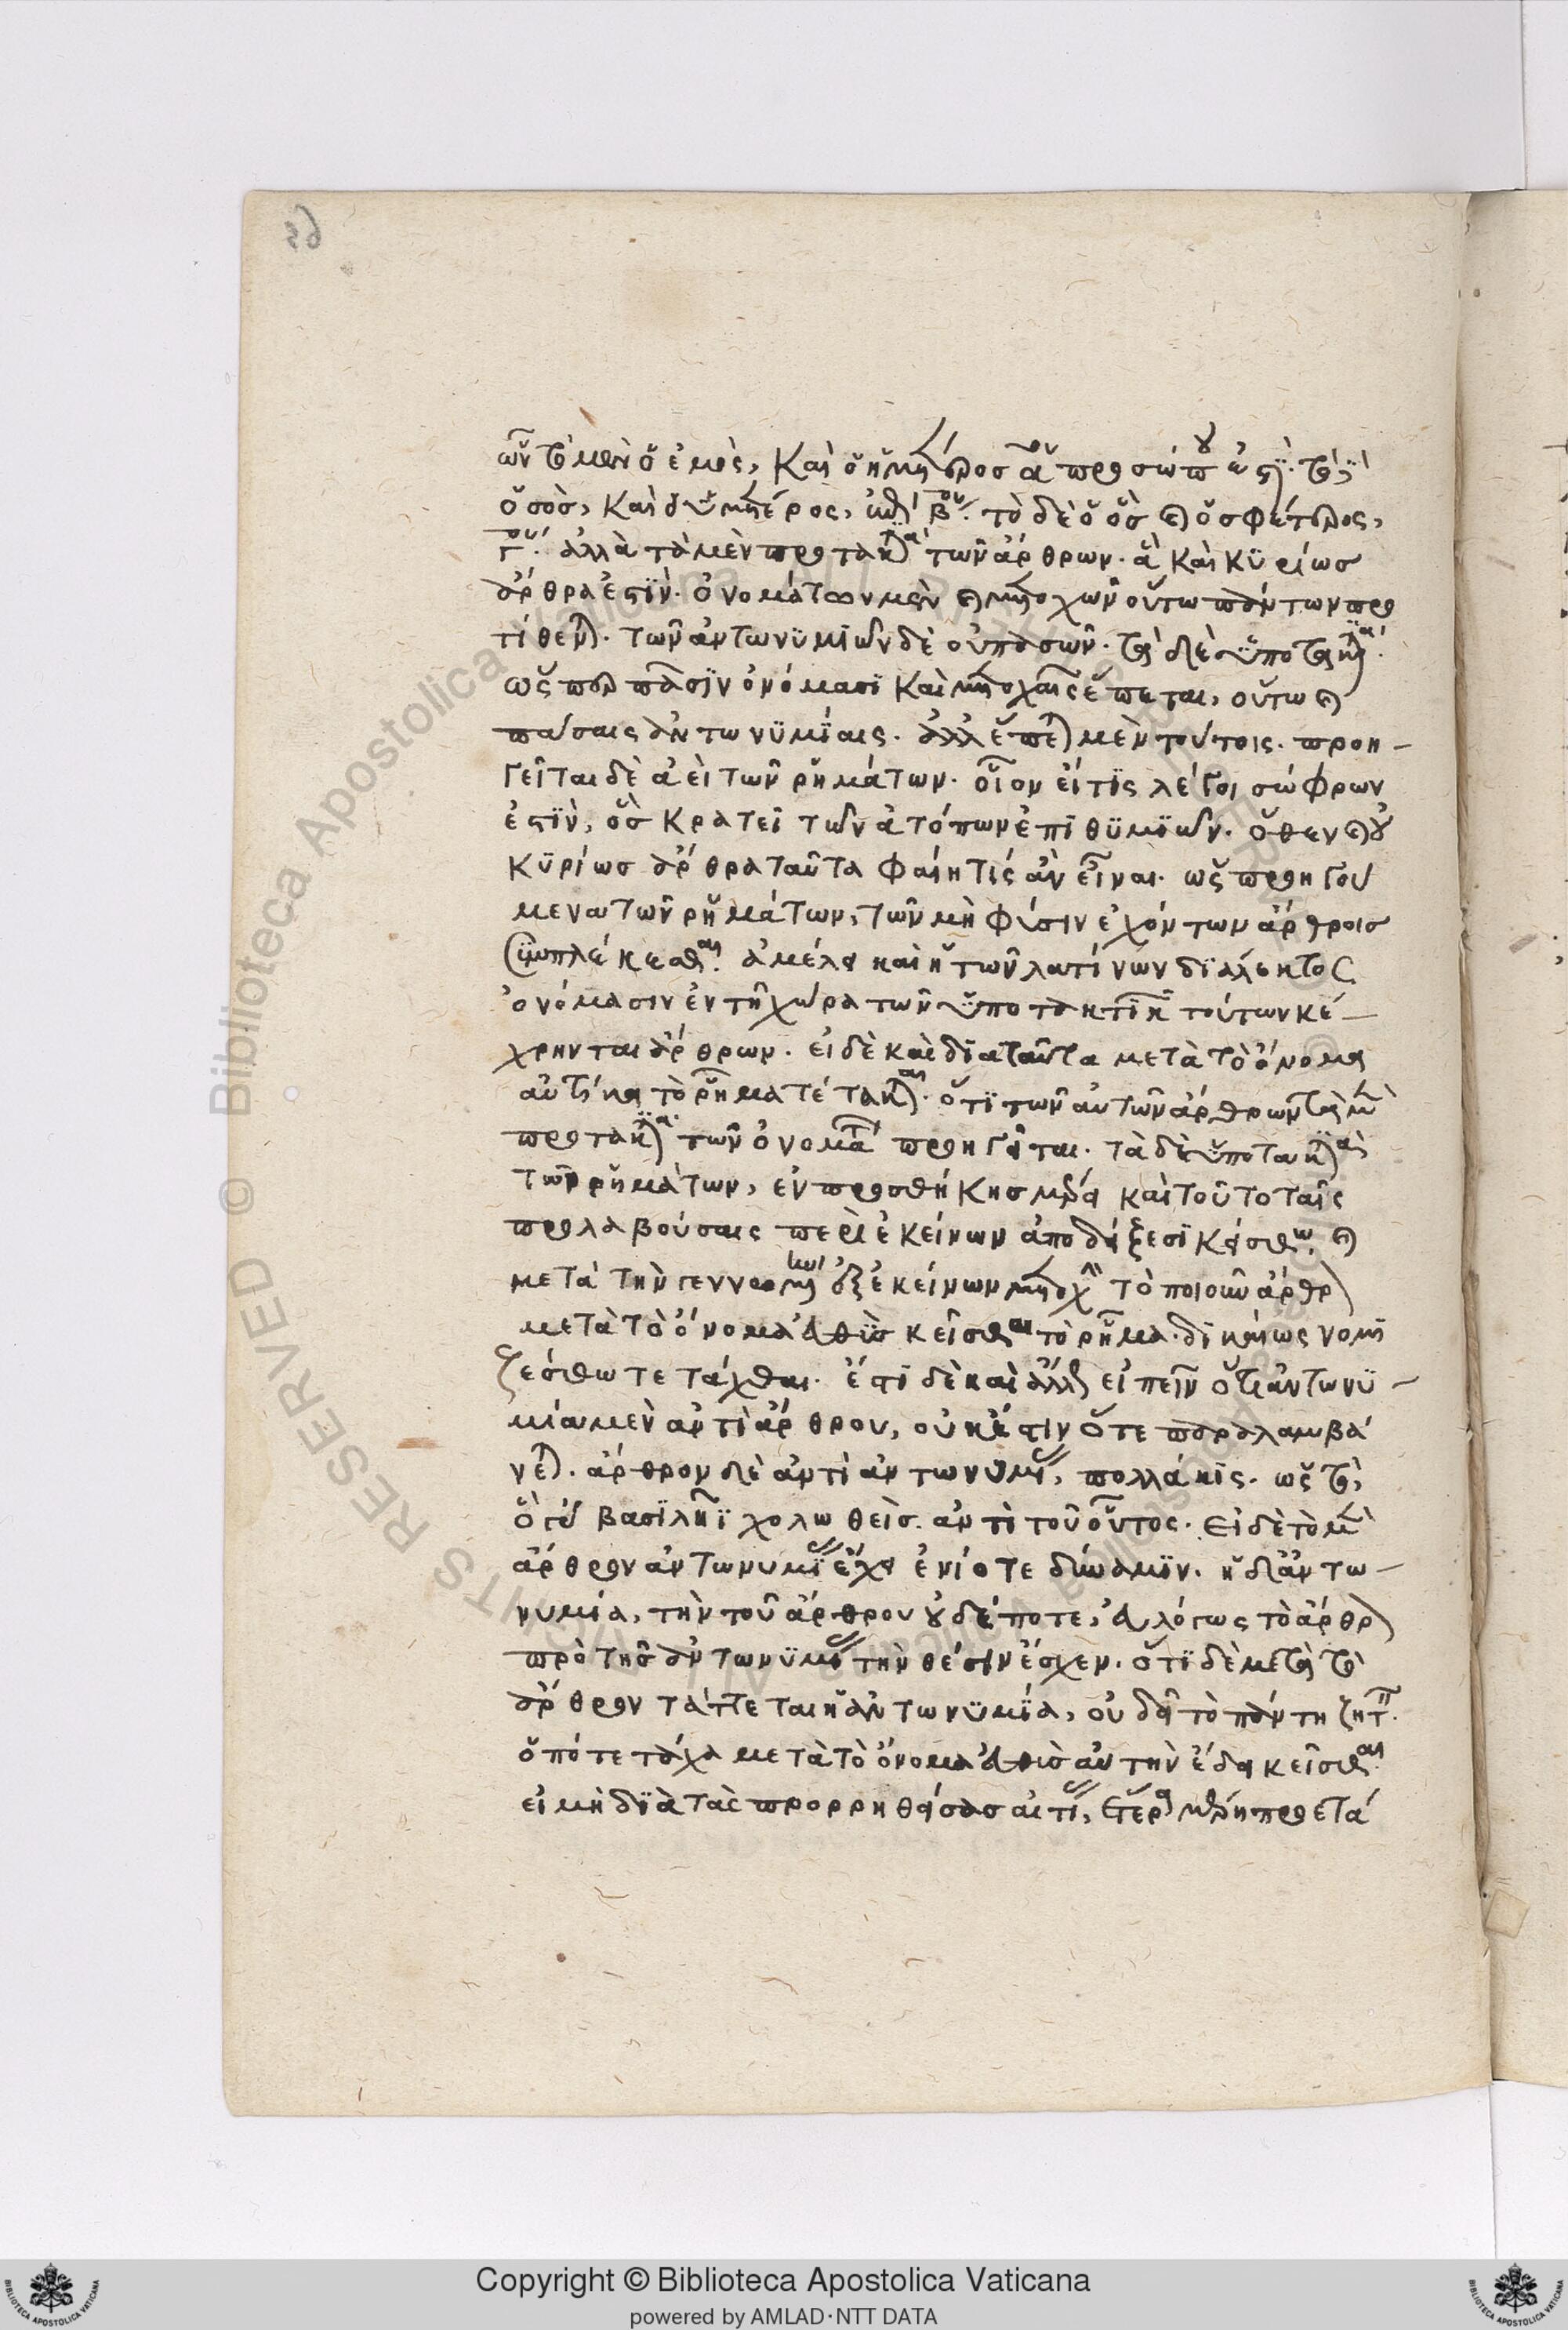 ὧν τὸ μὲν ὁ ἐμὸς, καὶ ὁ ἡμέτερος α προσώπου ἐστὶ. τὸ δὲ
ὁ σὸς, καὶ ὁ ὑμέτερος, ἐστὶ βου. τὸ δὲ ὁ ὃς καὶ ὁ σφέτερος,
γου. ἀλλὰ τὰ μὲν προτακτικὰ τῶν ἄρθρων. ἃ καὶ κυρίως
ἄρθρα ἐστὶν. ὀνομάτων μὲν καὶ μετοχῶν οὕτω πάντων προ
τίθενται. τῶν ἀντωνυμιῶν δὲ οὐ πασῶν. τὰ δέ ὑποτακτικὰ.
ὥσπερ πᾶσιν ὀνόμασι καὶ μετοχαῖς ἕπεται, οὕτω καὶ
πάσαις ἀντωνυμίαις. ἀλλ' ἕπεται μὲν τούτοις. προη-
γεῖται δὲ ἀεὶ τῶν ῥημάτων. οἷον εἴ τις λέγοι σώφρων
ἐστὶν, ὃς κρατεῖ τῶν ἀτόπων ἐπιθυμιῶν. ὅθεν καὶ οὐ
κυρίως ἄρθρα ταῦτα φαίη τίς ἂν εἶναι. ὡς προηγού
μενα τῶν ῥημάτων, τῶν μὴ φύσιν ἐχόντων ἄρθροις
συμπλέκεσθαι. ἀμέλει καὶ ἡ τῶν λατίνων διάλεκτος
ὀνόμασιν ἐν τῇ χώρα τῶν ὑποτακτικῶν τούτων κέ-
χρηνται ἄρθρων. εἰ δὲ καὶ διαταῦτα μετὰ τὸ ὄνομα
αὐτίκα τὸ ῥῆμα τέτακται. ὅτι τῶν αὐτῶν ἄρθρων τὰ μὲν
προτακτικὰ τῶν ὀνομάτων προηγεῖται. τὰ δὲ ὑποτακτικὰ
τῶν ῥημάτων, ἐν προσθήκης μοίρα καὶ τοῦτο ταῖς
προλαβούσαις περὶ ἐκείνων ἀποδείξεσι κείσθω. καὶ
μετὰ τὴν γεννωμένην ἐξ ἐκείνων μετοχὴν τὸ ποιοῦν ἄρθρον
μετὰ τὸ ὄνομα εὐθὺς κεῖσθαι τὸ ῥῆμα. δικαίως νομι
ζέσθω τετάχθαι. ἔστι δὲ καὶ ἄλλως εἰπεῖν ὅτι ἀντωνυ-
μία μὲν ἀντὶ ἄρθρου, οὐκ ἔστιν ὅτε παραλαμβά
νεται. ἄρθρον δὲ ἀντὶ ἀντωνυμίας, πολλάκις. ὡς τὸ,
ὃ γὰρ βασιλῆϊ χολωθεὶς. ἀντὶ τοῦ οὗτος. εἰ δὲ τὸ μὲν
ἄρθρον ἀντωνυμίας ἔχει ἐνίοτε δύναμιν. ἡ δὲ ἀντω-
νυμία, τὴν τοῦ ἄρθρου οὐδέποτε, εὐλόγως τὸ ἄρθρον
πρὸ τῆς ἀντωνυμίας τὴν θέσιν ἔσχεν. ὅτι δὲ μετὰ τὸ
ἄρθρον τάττεται ἡ ἀντωνυμία, οὐ δεῖ τὸ πάντη ζητεῖν.
ὁπότε τάχα μετὰ τὸ ὄνομα εὐθὺς αὐτὴν ἔδει κεῖσθαι.
εἰ μὴ διὰ τὰς προρρηθείσας αἰτίας, ἕτερα μέρη προετά